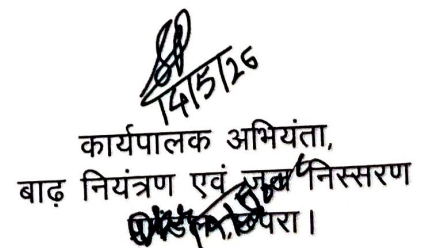 14/5/26
कार्यपालक अभियंता,
बाढ़ नियंत्रण एवं जल निस्सरण
छपरा।